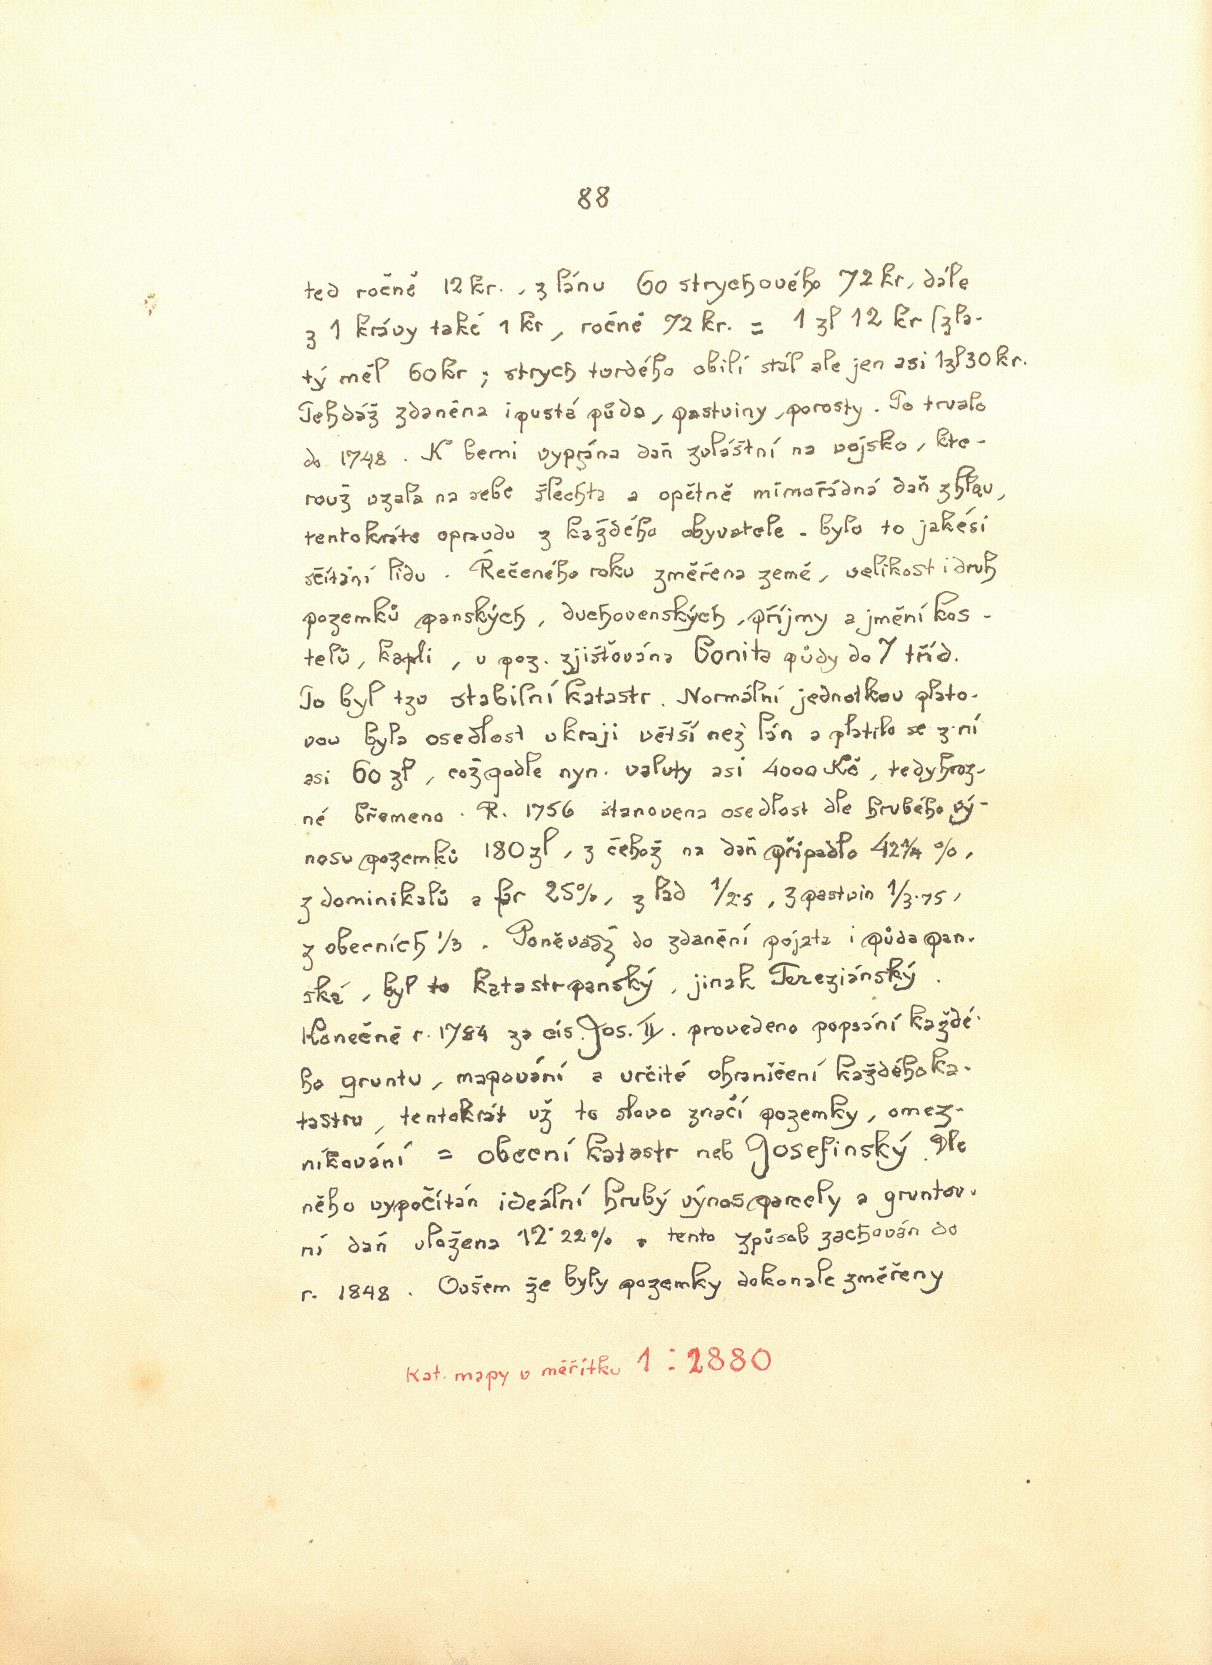 88
ted ročně 12 kr. , z lánu 60 strychového 72 kr, dále
z 1 krávy také 1 kr , ročně 72 kr. = 1 zl 12 kr (zla-
tý měl 60 kr ; strych tvrdého obilí stál ale jen asi 1 zl 30 kr.
Tehdáž zdaněna i pustá půda, pastviny, porosty . To trvalo
do 1748 . K berni vypsána daň zvláštní na vojsko , kte-
rouž vzala na sebe šlechta a opětně mimořádná daň z hlav,
tentokráte opravdu z každého obyvatele - bylo to jakési
sčítání lidu . Řečeného roku změřena země, velikost i druh
pozemků panských , duchovenských , příjmy a jmění kos -
telů , kaplí , u poz . zjišťována bonita půdy do 7 tříd.
To byl tzv stabilní katastr . Normální jednotkou plato-
vou byla osedlost v kraji větší než lán a platilo se z ní
asi 60 zl , což podle nyn . valuty asi 4000 Kč , tedy hroz-
né břemeno . R. 1756 stanovena osedlost dle hrubého vý-
nosu pozemků 180 zl , z čehož na daň připadlo 42 1/4 % ,
z dominikalů a far 25% , z lad 1/2.5 , z pastvin 1/3.75 ,
z obecních 1/3 . Poněvadž do zdanění pojata i půda pan-
ská , byl to katastr panský , jinak Tereziánský .
Konečně r. 1784 za cís. Jos. II . provedeno popsání každé-
ho gruntu , mapování a určité ohraničení každého ka-
tastru , tentokrát už to slovo značí pozemky , omez-
níkování = obecní katastr neb Josefinský . Dle
něho vypočítán ideální hrubý výnos parcely a gruntov-
ní daň uložena 12.22% . tento způsob zachován do
r. 1848 . Ovšem že byly pozemky dokonale změřeny
Kat. mapy v měřítku 1 : 2880